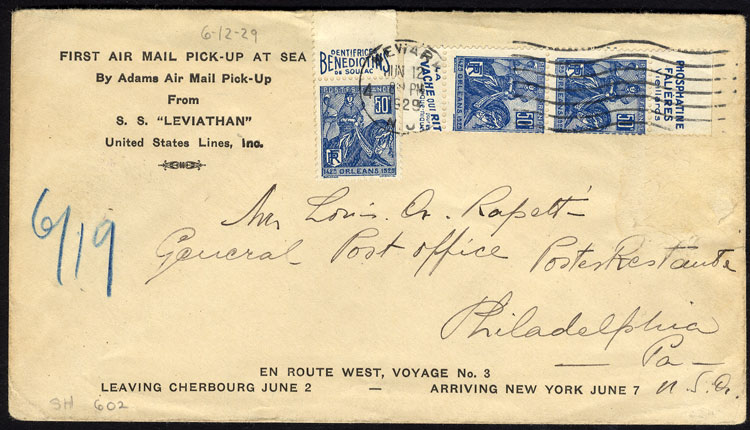 6-12-29
FIRST AIR MAIL PICK-UP AT SEA
By Adams Air Mail Pick-Up
From
S. S. "LEVIATHAN"
United States Lines, Inc.
DENTIFRICES
BENEDICTINS
DE SOULAC
POSTES FRANCE
50c
RF
1429 ORLEANS 1929
NEWARK
JUN 12
4 PM
1929
N.J.
LA
VACHE QUI RIT
RF
1429 ORLEANS 1929
50c
RF
1429 ORLEANS 1929
50c
PHOSPHATINE
FALIERES
vieillards
6/19
Mr Louis. A. Rapetti
General Post office Postes Restante
Philadelphia
Pa
U. S. A.
EN ROUTE WEST, VOYAGE No. 3
LEAVING CHERBOURG JUNE 2 — ARRIVING NEW YORK JUNE 7
SH 602